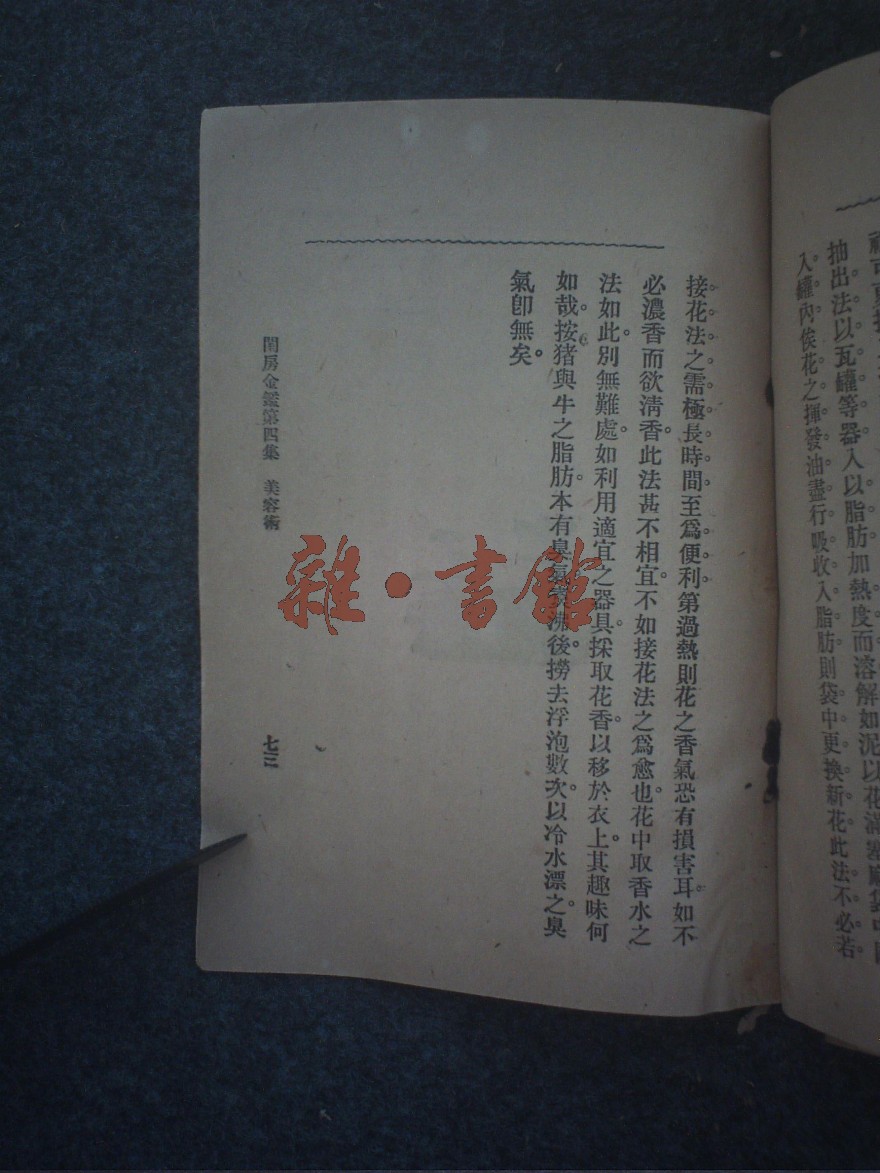 抽出法以瓦罐等器入以脂肪加熱度而溶解如泥以花滿
入罐內俟花之揮發油盡行吸收入脂肪則袋中更換新花此法不必若
接花法之需極長時間至爲便利第過熱則花之香氣恐有損害耳如不
必濃香而欲淸香此法甚不相宜不如接花法之爲愈也花中取香水之
法如此別無難處如利用適宜之器具採取花香以移於衣上其趣味何
如哉按猪與牛之脂肪本有臭氣沸後撈去浮泡數次以冷水漂之臭
氣卽無矣。
閨房金鑑第四集　美容術
七三
雜·書館